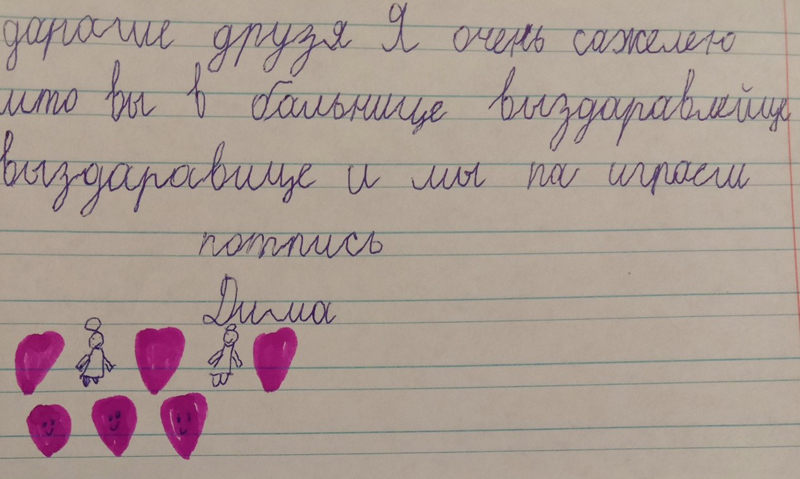 дарагие друзя Я очень сажелею
што вы в бальнице выздаравлейще
выздаравище и мы па играем
потпись
Дима